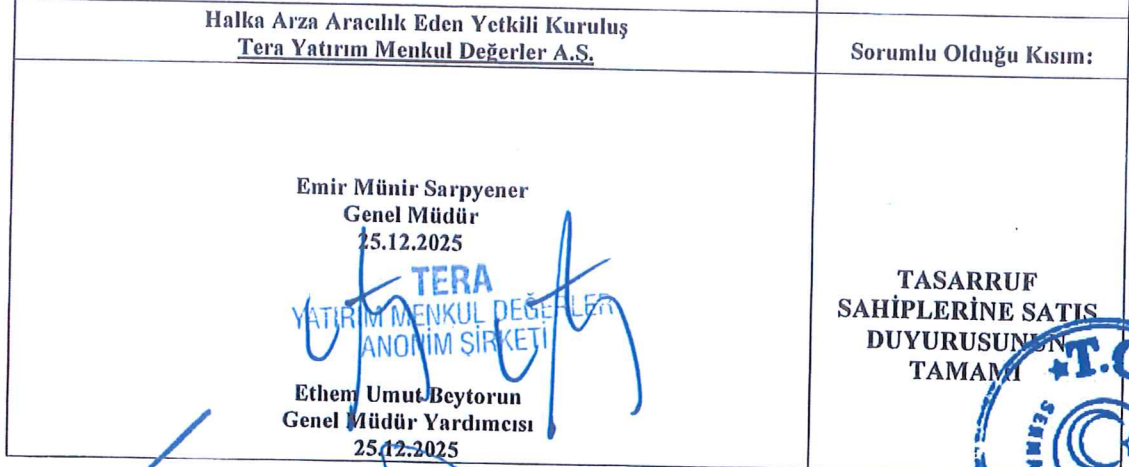 Halka Arza Aracılık Eden Yetkili Kuruluş
Tera Yatırım Menkul Değerler A.Ş.
Sorumlu Olduğu Kısım:
Emir Münir Sarpyener
Genel Müdür
25.12.2025
TERA
YATIRIM MENKUL DEĞERLER
ANONİM ŞİRKETİ
Ethem Umut Beytorun
Genel Müdür Yardımcısı
25.12.2025
TASARRUF
SAHİPLERİNE SATIŞ
DUYURUSUNUN
TAMAMI
T.C